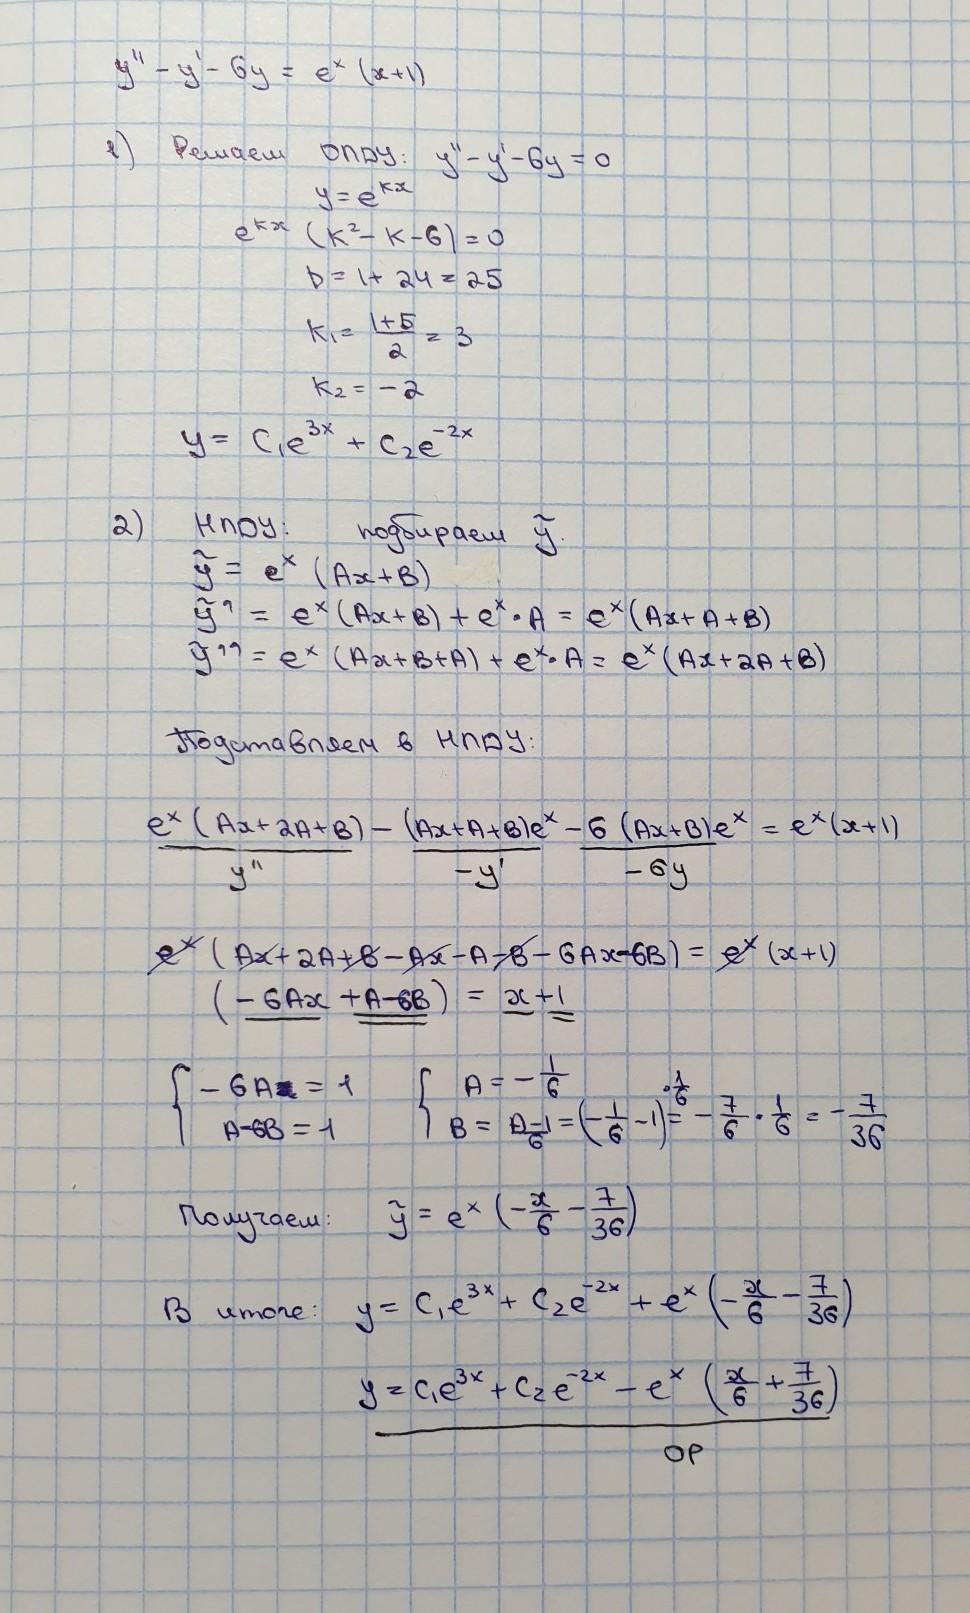 y'' - y' - 6y = eˣ (x+1)
1) Решаем ОЛДУ: y'' - y' - 6y = 0
y = e^{kx}
e^{kx} (k² - k - 6) = 0
D = 1 + 24 = 25
k₁ = \frac{1+5}{2} = 3
k₂ = -2
y = C₁e^{3x} + C₂e^{-2x}
2) НЛДУ: подбираем ỹ.
ỹ = eˣ (Ax+B)
ỹ' = eˣ(Ax+B) + eˣ·A = eˣ(Ax+A+B)
ỹ'' = eˣ (Ax+B+A) + eˣ·A = eˣ(Ax+2A+B)
Подставляем в НЛДУ:
eˣ (Ax+2A+B) - (Ax+A+B)eˣ - 6 (Ax+B)eˣ = eˣ(x+1)
y'' -y' -6y
eˣ (Ax+2A+B-Ax-A-B-6Ax-6B) = eˣ (x+1)
(-6Ax + A-6B) = x+1
{ -6A = 1 { A = -\frac{1}{6}
A-6B = 1 B = \frac{A-1}{6} = (-\frac{1}{6} - 1)·\frac{1}{6} = -\frac{7}{6} · \frac{1}{6} = -\frac{7}{36}
Получаем: ỹ = eˣ (-\frac{x}{6} - \frac{7}{36})
В итоге: y = C₁e^{3x} + C₂e^{-2x} + eˣ (-\frac{x}{6} - \frac{7}{36})
y = C₁e^{3x} + C₂e^{-2x} - eˣ (\frac{x}{6} + \frac{7}{36})
ОР